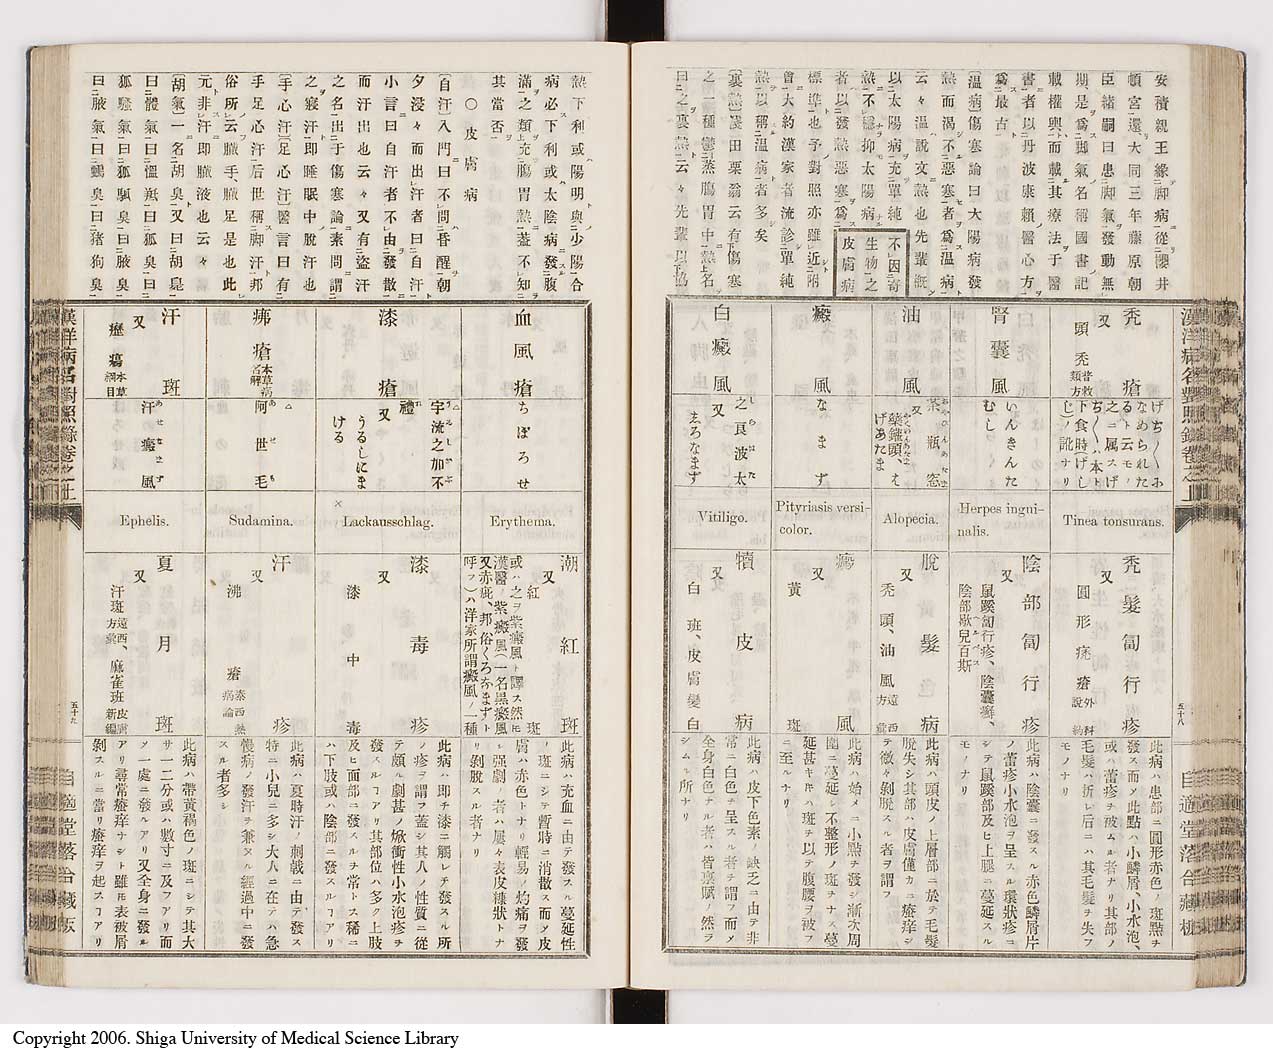 安積親王緣脚病從櫻井
頓宮還大同三年藤原朝
臣緒嗣曰患脚氣發動無
期是爲脚氣名稱國書記
載權輿而載其療法于醫
書者以丹波康賴醫心方
爲最古
〔溫病〕傷寒論曰大陽病發
熱而渴不惡寒者爲溫病
云々溫說文熱也先輩概
以太陽病充單純
熱不穩抑太陽病
者以發熱惡寒爲
標準也予對照亦雖近附
曾大約漢家者流診單純
熱以稱溫病者多矣
〔裏熱〕淺田栗翁云有下傷寒
之一種鬱蒸腸胃中熱上名
曰之裏熱云々先輩以下協
不因寄
生物之
皮膚病
禿瘡
又
頭禿
げぢ〱ふ
なめられた
る云モノ
之ニ属スげ
ぢ〱ハ本ト
下食時(げし
じ)ノ訛ナリ
Tinea tonsurans.
禿髮匐行疹
又
圓形痓瘡
此病ハ患部ニ圓形赤色ノ斑點チ
發ス而メ此點ハ小鱗屑、小水泡、
或ハ蕾疹ヲ破ムル者ナリ其部ノ
毛髮ハ折レ后ニハ其毛髮ヲ失フ
モノナリ
腎囊風
いんきんた
むし
Herpes ingui-
nalis.
陰部匐行疹
又
鼠蹊匐行疹、陰囊癬、
陰部歇兒百斯
此病ハ陰囊ニ發スル赤色鱗屑片
ノ蕾疹小水泡ヲ呈スル環狀疹ニ
シテ鼠蹊部及ヒ上腿ニ蔓延スル
モノナリ
油風
茶瓶窓
又
藥鑵頭、え
げあたま
Alopecia.
脫髮病
又
禿頭、油風
此病ハ頭皮ノ上層部ニ於テ毛髮
脫失シ其部ハ皮膚僅カニ瘡痒シ
テ微々剝脫スル者ヲ謂フ
癜風
なまず
Pityriasis versi-
color.
癜風
又
黃斑
此病ハ始メニ小點ヲ發シ漸次周
圍ニ蔓延シ不整形ノ斑ヲナス蔓
延甚キハ斑ヲ以テ腹腰ヲ被フ
ニ至ルナリ
白癜風
之良波太
又
志ろなまず
Vitiligo.
犢皮病
又
白斑、皮膚變白
此病ハ皮下色素ノ缺乏ニ由テ非
常ニ白色チ呈スル者チ謂フ而メ
全身白色ナル者ハ皆稟賦ノ然ヲ
シムル所ナリ
漢洋病名對照錄卷之上
五十八
自適堂落合藏板
熱下利或陽明與少陽合
病必下利或太陰病發腹
滿之類充腸胃熱蓋不知
其當否
〇皮膚病
〔自汗〕入門曰不問昏醒朝
夕浸々而出汗者曰自汗
小言曰自汗者不由發散
而汗出也云々又有盜汗
之名出于傷寒論素問謂
之寢汗卽睡眠中脫汗也
〔手心汗〕〔足心汗〕醫言曰有
手足心汗后世稱脚汗邦
俗所云臟手、臟足是也此
元非汗卽臟液也云々
〔胡氣〕一名胡臭又曰胡臰
曰體氣曰慍羝曰狐臭曰
狐騷氣曰狐臰臭曰腋臭
曰腋氣曰蝎臭曰猪狗臭
血風瘡
ちぼろせ
Erythema.
潮紅斑
又
紅斑
或ハ之ヲ紫癜風ト譯ス然ㇾ𪜈
漢醫ノ紫癜風(一名黑癜風
又赤疵、邦俗くろなまずト
呼フ)ハ洋家所謂癜風ノ一種
此病ハ充血ニ由テ發スル蔓延性
ノ斑ニシテ暫時ニ消散ス而メ皮
膚ハ赤色トナリ輕易ノ灼痛ヲ發
シ强劇ノ者ハ屢々表皮糠狀トナ
リ剝脫スル者ナリ
漆瘡
宇流之加不
禮
又
うるしにま
ける
Lackausschlag.
漆毒疹
又
漆中毒
此病ハ卽チ漆ニ觸レテ發スル所
ノ疹ヲ謂フ蓋シ其人ノ性質ニ從
テ頗ル劇甚ノ焮衝性小水泡疹ヲ
發スルコアリ其部位ハ多ク上肢
及ヒ面部ニ發スルチ常トス稀ニ
ハ下肢或ハ陰部ニ發スルコアリ
疿瘡
阿世毛
Sudamina.
汗疹
又
沸瘡
此病ハ夏時汗ノ刺戟ニ由テ發ス
特ニ小兒ニ多シ大人ニ在テハ急
慢病ノ發汗ヲ兼タル經過中ニ發
スル者多シ
汗斑
又
癧瘍
汗癜風
Ephelis.
夏月斑
又
汗斑、麻雀班
此病ハ帶黃褐色ノ斑ニシテ其大
サ一二分或ハ數寸ニ及フアリ而
メ一處ニ發ルアリ又全身ニ發ル
アリ尋常瘡痒ナシト雖𪜈表被屑
剝スルニ當リ瘡痒ヲ起スコアリ
漢洋病名對照錄卷之上
五十九
自適堂落合藏板
Copyright 2006. Shiga University of Medical Science Library